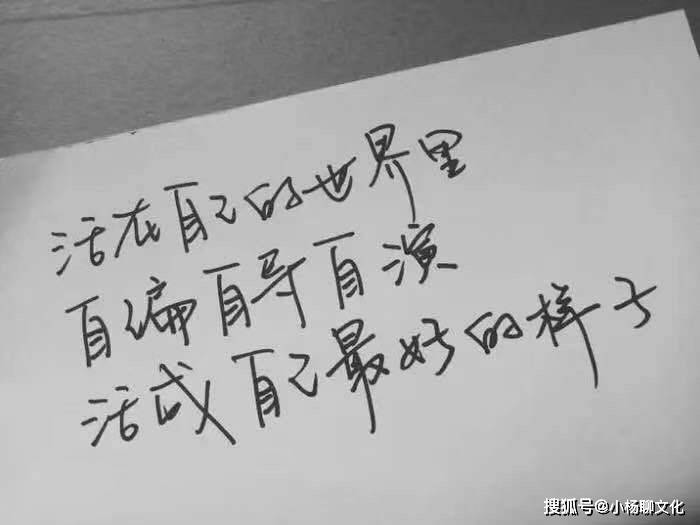 活在自己的世界里
自编自导自演
活成自己最好的样子
搜狐号@小杨聊文化